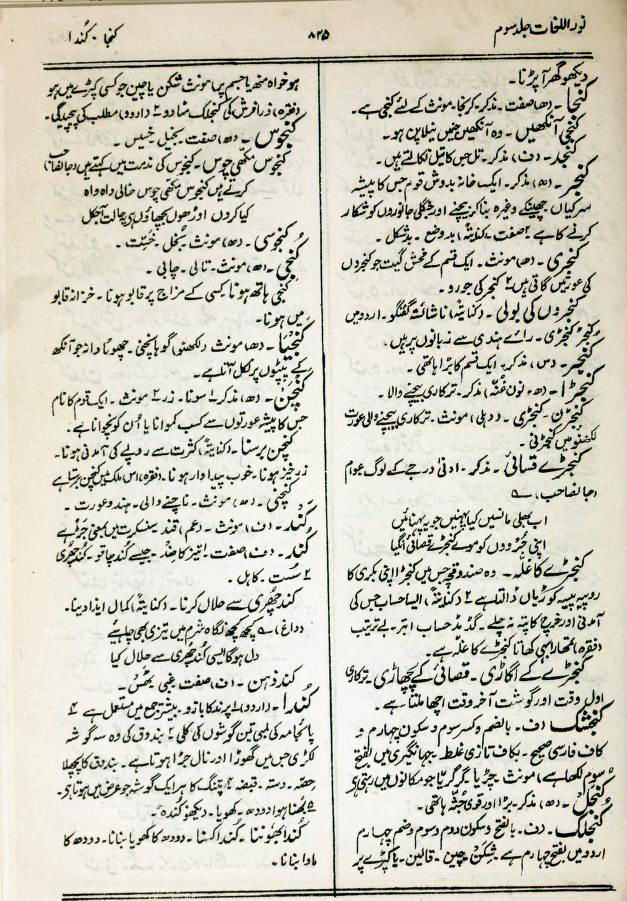 نور اللغات جلد سوم
۸۲۵
کنجا ۔ کُندا
دیکھو گھر آپڑنا۔
کنجا ۔ (ھ) صفت۔ مذکر۔ کرنجا۔ مونث کے لئے کنجی ہے۔
کنجی آنکھیں ۔ وہ آنکھیں جنمیں نیلا پن ہو۔
کنجد ۔ (ف) مذکر۔ تِل جس کا تیل نکالتے ہیں۔
کنجر ۔ (ھ) مذکر۔ ایک خانہ بدوش قوم جس کا پیشہ
سرکیاں چھینکے وغیرہ بنا کر بیچنے اور جنگلی جانوروں کو شکار
کرنے کا ہے ۲ صفت۔ (کنایۃً) بد وضع ۔ بد شکل۔
کنجری ۔ (ھ) مونث۔ ایک قسم کے فحش گیت جو کنجروں
کی عورتیں گاتی ہیں ۲ کنجر کی جورو۔
کنجروں کی بولی ۔ (کنایۃً) ناشائستہ گفتگو۔ اردو میں
کنجڑ کنجڑی۔ رائے ہندی سے زبانوں پر ہیں۔
کنجر ۔ (س) مذکر۔ ایک قسم کا بڑا ہاتھی۔
کنجڑا ۔ (ھ۔ نون غنہ) مذکر۔ ترکاری بیچنے والا۔
کنجڑن ۔ کنجڑی ۔ (دہلی) مونث۔ ترکاری بیچنے والی عورت
لکھنؤ میں کنجڑنی۔
کنجڑے قسائی ۔ مذکر۔ ادنیٰ درجے کے لوگ عوام
(جانصاحب) ؎
اب بھلی مانسیں کیا پہنیں جو یہ پہنائیں
اپنی جُردوں کو موے کنجڑے قصائی انگیا
کنجڑے کا غلّہ ۔ وہ صندوقچہ جس میں کنجڑا اپنی بکری کا
روپیہ پیسہ کوڑیاں ڈالتا ہے ۲ (کنایۃً) ایسا حساب جس کی
آمدنی اور خرچ کا پتہ نہ چلے۔ گڈمڈ حساب ابتر۔ بے ترتیب
(فقرہ) تمھارا بھی کھاتا کنجڑے کا غلّہ ہے۔
کنجڑے کے اگاڑی ۔ قصائی کے پچھاڑی ۔ ترکاری
اول وقت اور گوشت آخر وقت اچھا ملتا ہے۔
کنجشک (ف۔ بالضم و کسر سوم و سکون چہارم و
کاف فارسی صحیح۔ بکاف تازی غلط۔ جہانگیری میں بالفتح
سوم لکھا ہے) مونث۔ چڑیا۔ گرگریّا جو مکانوں میں رہتی ہے
کنجل ۔ (ھ) مذکر۔ بڑا اور قوی جُثّہ ہاتھی۔
کنجلک ۔ (ف۔ بالفتح و سکون دوم و سوم و ضم چہارم
اردو میں بفتح چہارم ہے) شکن چین۔ قالین۔ یا کپڑے پر
ہو خواہ منھ یا جسم پر) مونث شکن یا چین جو کسی کپڑے میں ہو
(فقرہ) ذرا فرش کی کنجلک مٹا دو ۲ (اردو) مطلب کی پیچیدگی۔
کنجوس ۔ (ھ) صفت۔ بخیل۔ خسیس۔
کنجوس مکھی چوس ۔ کنجوس کی مذمت میں کہتے ہیں (جانصاحب)
کرنے ہیں کنجوس مکھی چوس خالی واہ واہ
کیا کروں اوڑھوں بچھاؤں ہی حالت آجکل
کنجوسی ۔ (ھ) مونث۔ بُخل۔ خسّت۔
کنجی ۔ (ھ) مونث۔ تالی۔ چابی۔
کنجی ہاتھ ہونا کسی کے مزاج پر قابو ہونا۔ خزانہ قابو
میں ہونا۔
کنجیا ۔ (ھ) مونث (لکھنؤ) گوہانجنی۔ چھوٹا دانہ جو آنکھ
کے پپوٹوں پر نکل آتا ہے۔
کنچن ۔ (ھ) مذکر۔ ۱ سونا۔ زر ۲ مونث۔ ایک قوم کا نام
جس کا پیشہ عورتوں سے کسب کموانا یا اُن کو نچوانا ہے۔
کنچن برسنا ۔ (کنایۃً) کثرت سے روپے کی آمدنی ہونا۔
زرخیز ہونا۔ خوب پیداوار ہونا۔ (فقرہ) اس ملک میں کنچن برستا ہے
کنچنی ۔ (ھ) مونث۔ ناچنے والی۔ ہندو عورت۔
کند ۔ (ف) مونث۔ (عم) قند۔ سنسکرت میں بمعنی جڑ ہے
کند ۔ (ف) صفت۔ ۱ تیز کا ضد۔ جیسے کند چاقو۔ کُند چھری
۲ سُست۔ کاہل۔
کند چھری سے حلال کرنا ۔ (کنایۃً) کمال ایذا دینا۔
(داغ) ؎ کچھ کچھ لگاہ شرم میں تیزی بھی چاہیے
دل ہو گا ایسی کند چھری سے حلال کیا
کند ذہن ۔ (ف) صفت۔ غبی۔ ٹھس۔
کندا ۔ (اردو) ۱ پرند کا بازو۔ بیشتر جمع میں مستعمل ہے ۲
پائجامہ کی لمبی تین گوشوں کی کلی ۳ بندوق کی وہ سہ گوشہ
لکڑی جس میں گھوڑا اور نال جڑا ہوتا ہے۔ بندوق کا پچھلا
حصّہ۔ دستہ۔ قبضہ ۴ پتنگ کا ہر ایک گوشہ جو عرض میں ہوتا ہی
۵ بھنا ہوا دودھ۔ کھویا۔ دیکھو کندہ۔
کندا بھوننا ۔ کندا کسنا ۔ دودھ کا کھویا بنانا۔ دودھ کا
ماوا بنانا۔